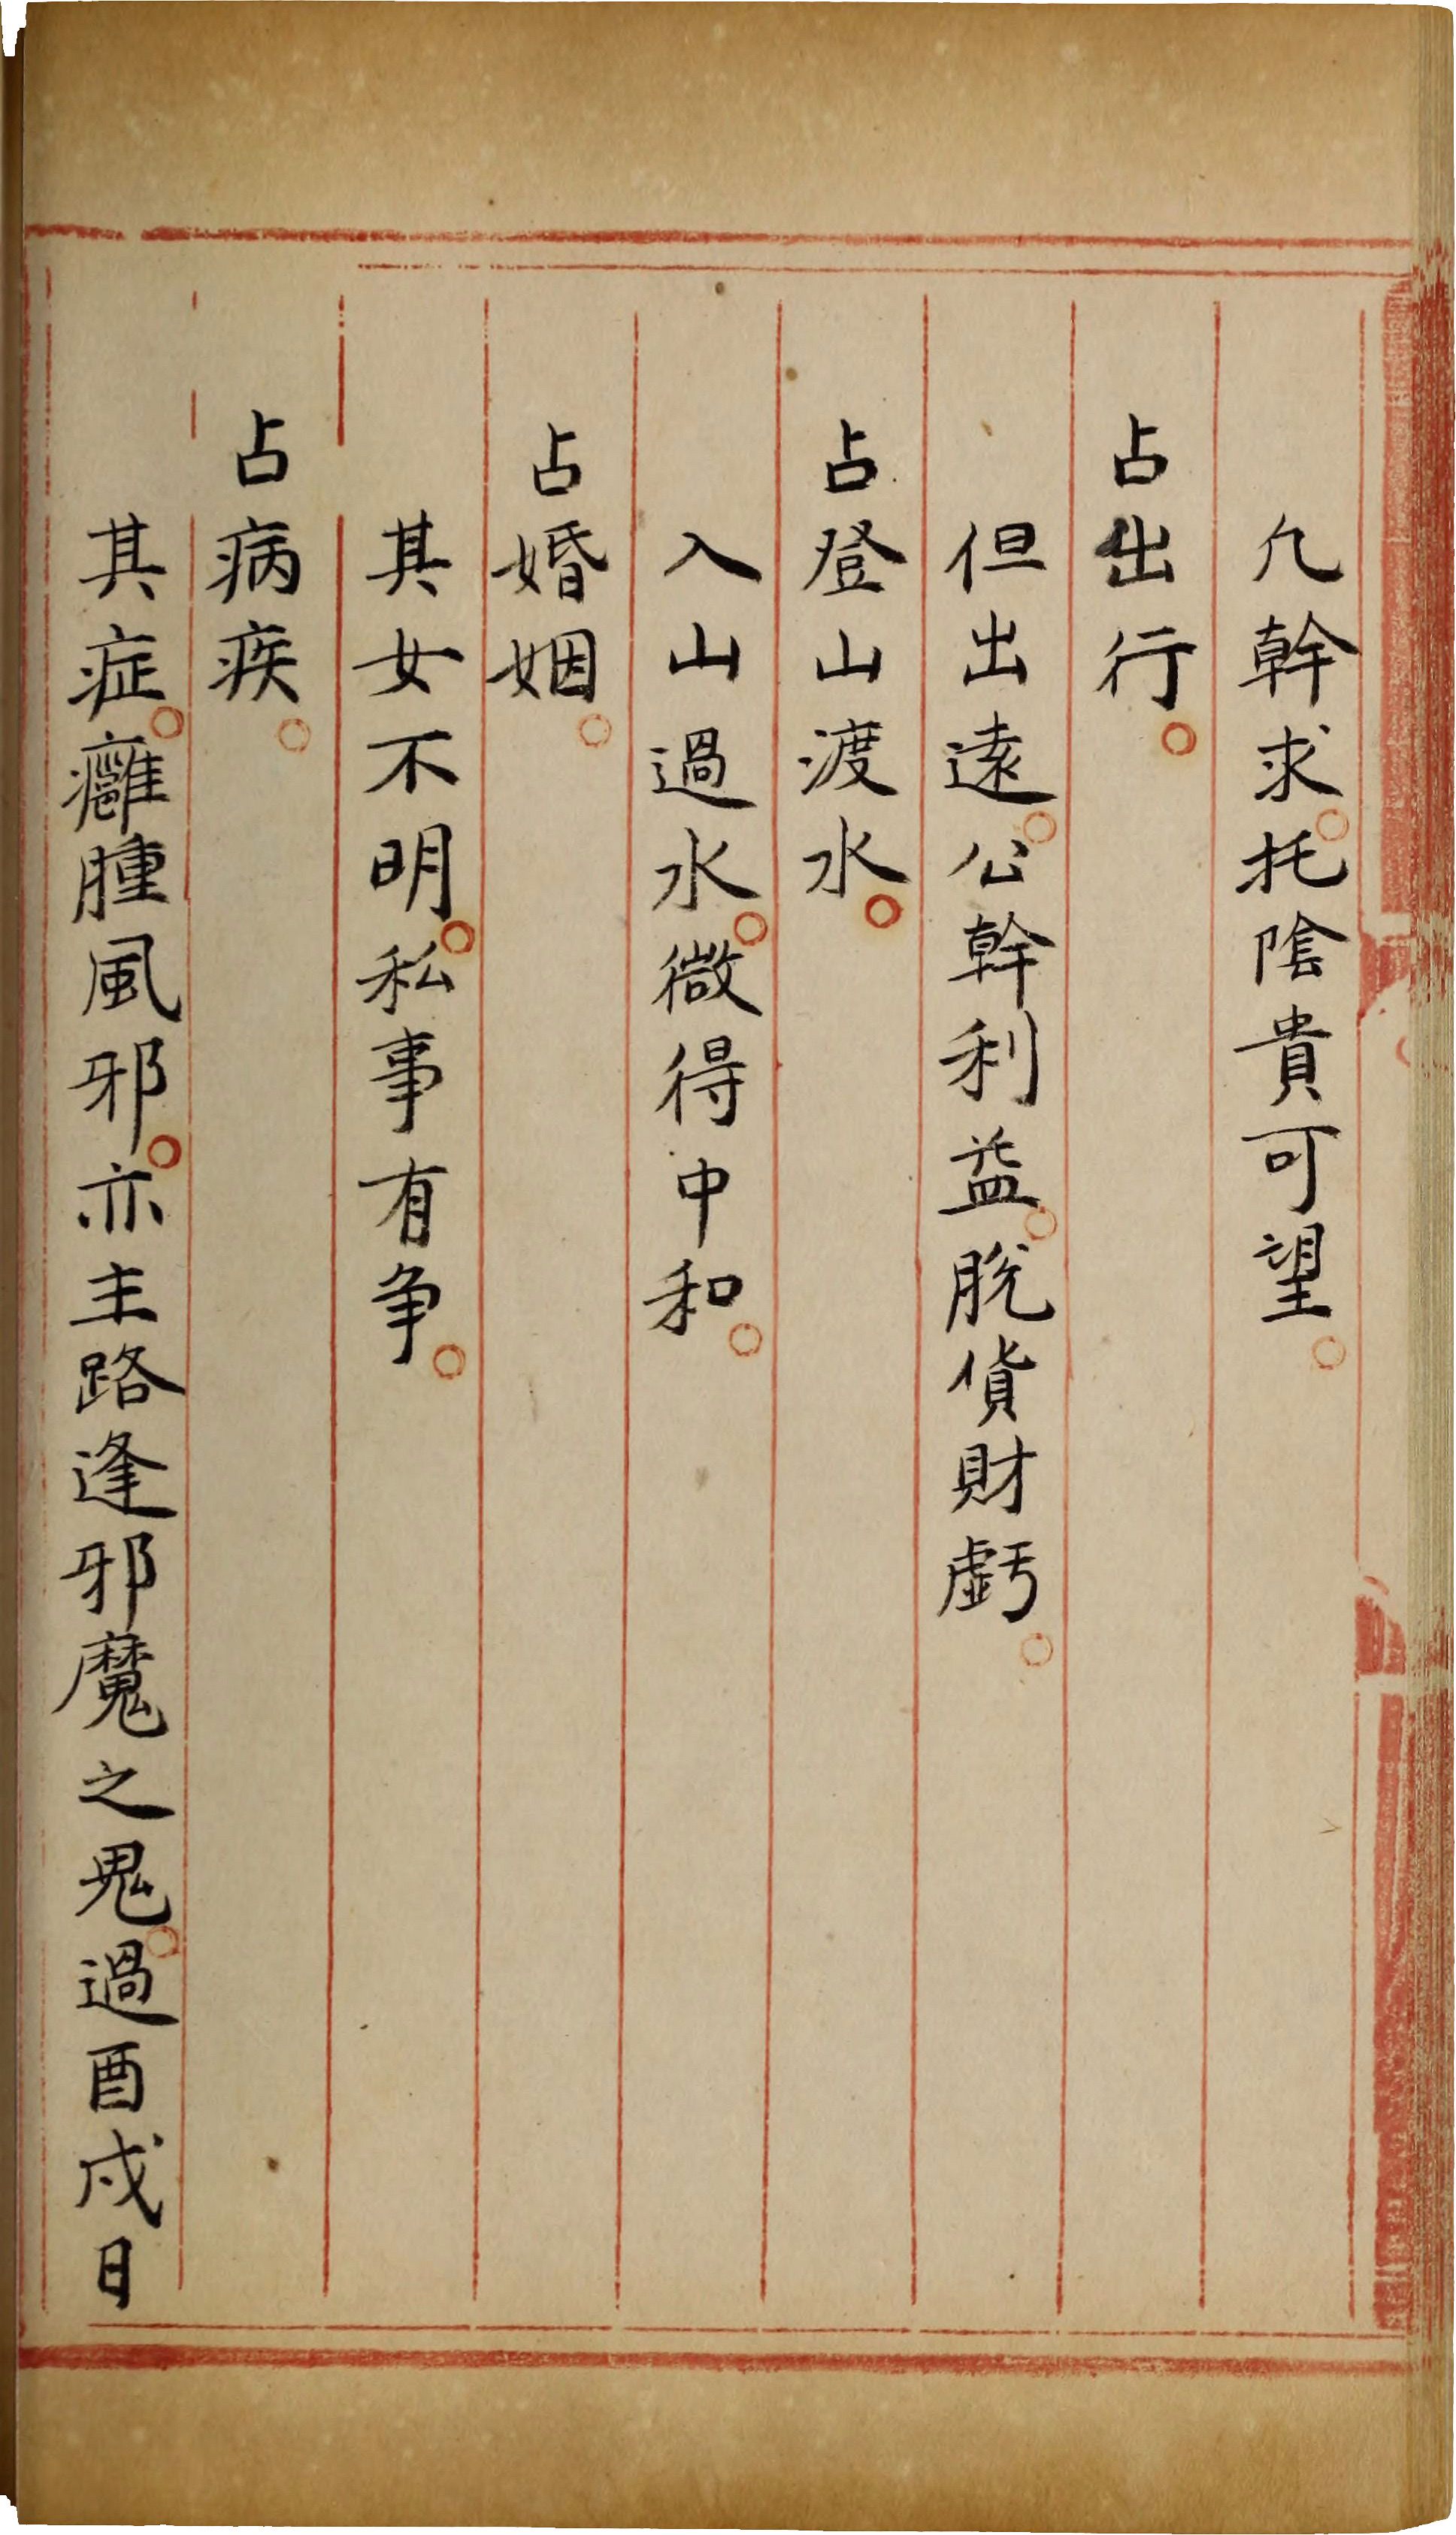 凢幹求。托陰貴可望。
占出行。
但出遠。公幹利益。脫貨財虧。
占登山渡水。
入山過水。微得中和。
占婚姻。
其女不明。私事有争。
占病疾。
其症。癰腫風邪。亦主路逢邪魔之鬼。過酉戌日